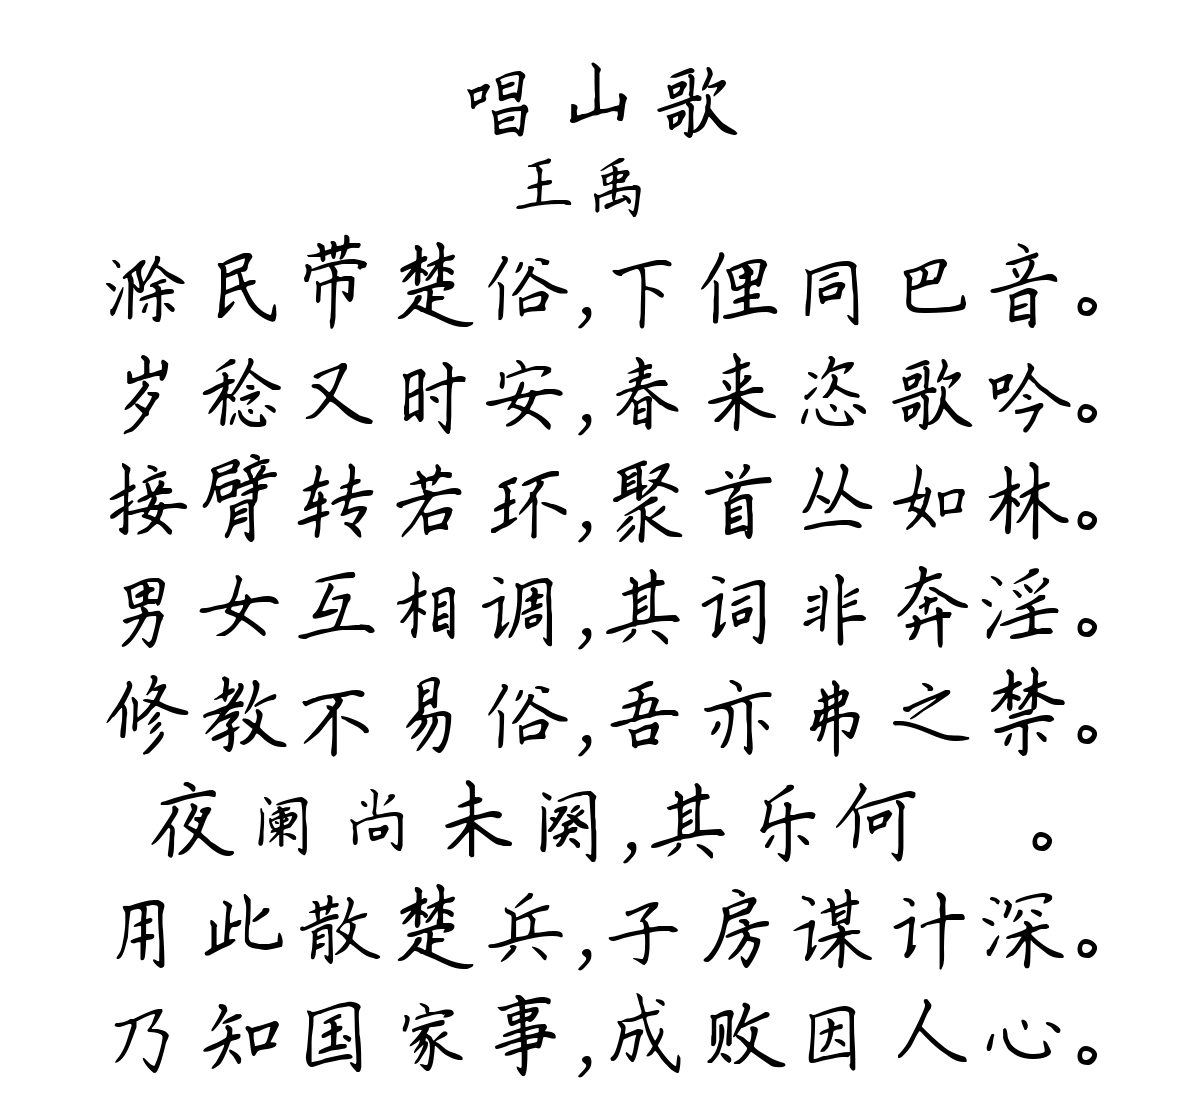 唱山歌
王禹
滁民带楚俗,下俚同巴音。
岁稔又时安,春来恣歌吟。
接臂转若环,聚首丛如林。
男女互相调,其词非奔淫。
修教不易俗,吾亦弗之禁。
夜阑尚未阕,其乐何 。
用此散楚兵,子房谋计深。
乃知国家事,成败因人心。